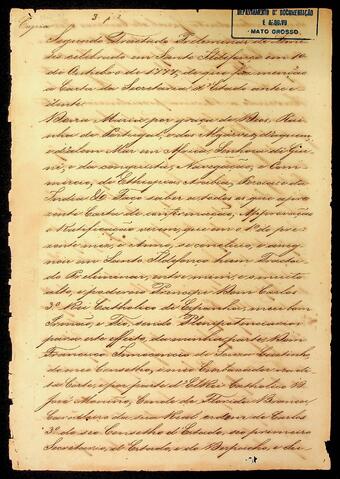 Copia
3.
DEPARTAMENTO D' DOCUMENTAÇÃO
E ARQUIVO
MATO GROSSO
Segundo Tractado Preliminar de
celebrado em Santo Ildefonso em 1º
de Outubro de 1777, de que faz menção
a Carta da Secretaria d'Estado ante
dente
Maria por graça de Deos, Rai
nha de Portugal, e dos Algarves, d'aquem,
e d'alem Mar em Africa, Senhora de Gui
né, e da conquista, Navegação, e Com
mercio, da Ethiopia, Arabia, Persia e da
India &. Faço saber a todos os que a pre
zente Carta de confirmação, Approvação
e Ratificação virem, que em o 1º do pre
zente mez, e Anno, se concluio, e assig
nou em Santo Ildefonso hum Tratado
Preliminar, entre mim, e o muito
alto, e poderoso Principe Dom Carlos
3º Rei Catholico de Espanha, meu bom
Irmão, e Tio, sendo Plenipotenciarios
para este effeito, da minha parte, Dom
Francisco Innocencio de Souza Coutinho
do meu Conselho, e meu Embaixador
Corte, e por parte d'ElRei Catholico D.
José Monino, Conde de Florida Branca
Cavalleiro da Real ordem de Carlos
3º do seu Conselho d'Estado, seu primeiro
Secretario, d'Estado, e do Despacho, e